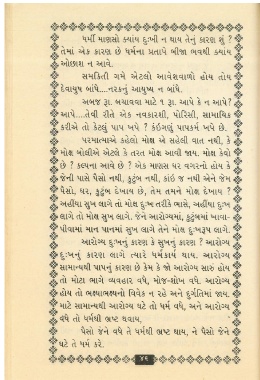 ધર્મી માણસો ક્યાંય દુઃખી ન થાય તેનું કારણ શું ?
તેમાં એક કારણ છે ધર્મના પ્રતાપે બીજા ભવથી ક્યાંય
ઓછાશ ન આવે.
સમકિતી ગમે એટલો આવેશવાળો હોય તોય
દેવાયુષ બાંધે....નરકનું આયુષ્ય ન બાંધે.
અબજ રૂા. બચાવવા માટે ૧ રૂા. આપે કે ન આપે?
આપે....તેવી રીતે એક નવકારશી, પોરિસી, સામાયિક
કરીએ તો કેટલું પાપ ખપે ? કંઈગણું પાપકર્મ ખપે છે.
પરમાત્માએ કહેલો મોક્ષ એ સહેલી વાત નથી, કે
મોક્ષ બોલીએ એટલે કે તરત મોક્ષ આવી જાય. મોક્ષ કેવો
છે ? કલ્પના આવે છે ? એક માણસ ઘર વગરનો હોય કે
જેની પાસે પૈસો નથી, કુટુંબ નથી, કાંઈ જ નથી એને જેમ
પૈસો, ઘર, કુટુંબ દેખાય છે, તેમ તમને મોક્ષ દેખાય ?
અહીંયા સુખ લાગે તો મોક્ષ દુઃખ તરીકે ભાસે, અહીંયા દુઃખ
લાગે તો મોક્ષ સુખ લાગે. જેને આરોગ્યમાં, કુટુંબમાં ખાવા-
પીવામાં માન પાનમાં સુખ લાગે તેને મોક્ષ દુઃખરૂપ લાગે.
આરોગ્ય દુઃખનું કારણ કે સુખનું કારણ ? આરોગ્ય
દુઃખનું કારણ લાગે ત્યારે ધર્મકાર્ય થાય. આરોગ્ય
સામાન્યથી પાપનું કારણ છે કેમ કે જો આરોગ્ય સારુ હોય
તો મોટા ભાગે વ્યવહાર વધે, મોજ-શોખ વધે. આરોગ્ય
હોય તો ભક્ષ્યાભક્ષ્યનો વિવેક ન રહે અને દુર્ગતિમાં જાય.
માટે સામાન્યથી આરોગ્ય ઘટે તો ધર્મ વધે, અને આરોગ્ય
વધે તો ધર્મથી ભ્રષ્ટ થવાય.
પૈસો જેને વધે તે ધર્મથી ભ્રષ્ટ થાય, ને પૈસો જેને
ઘટે તે ધર્મ કરે.